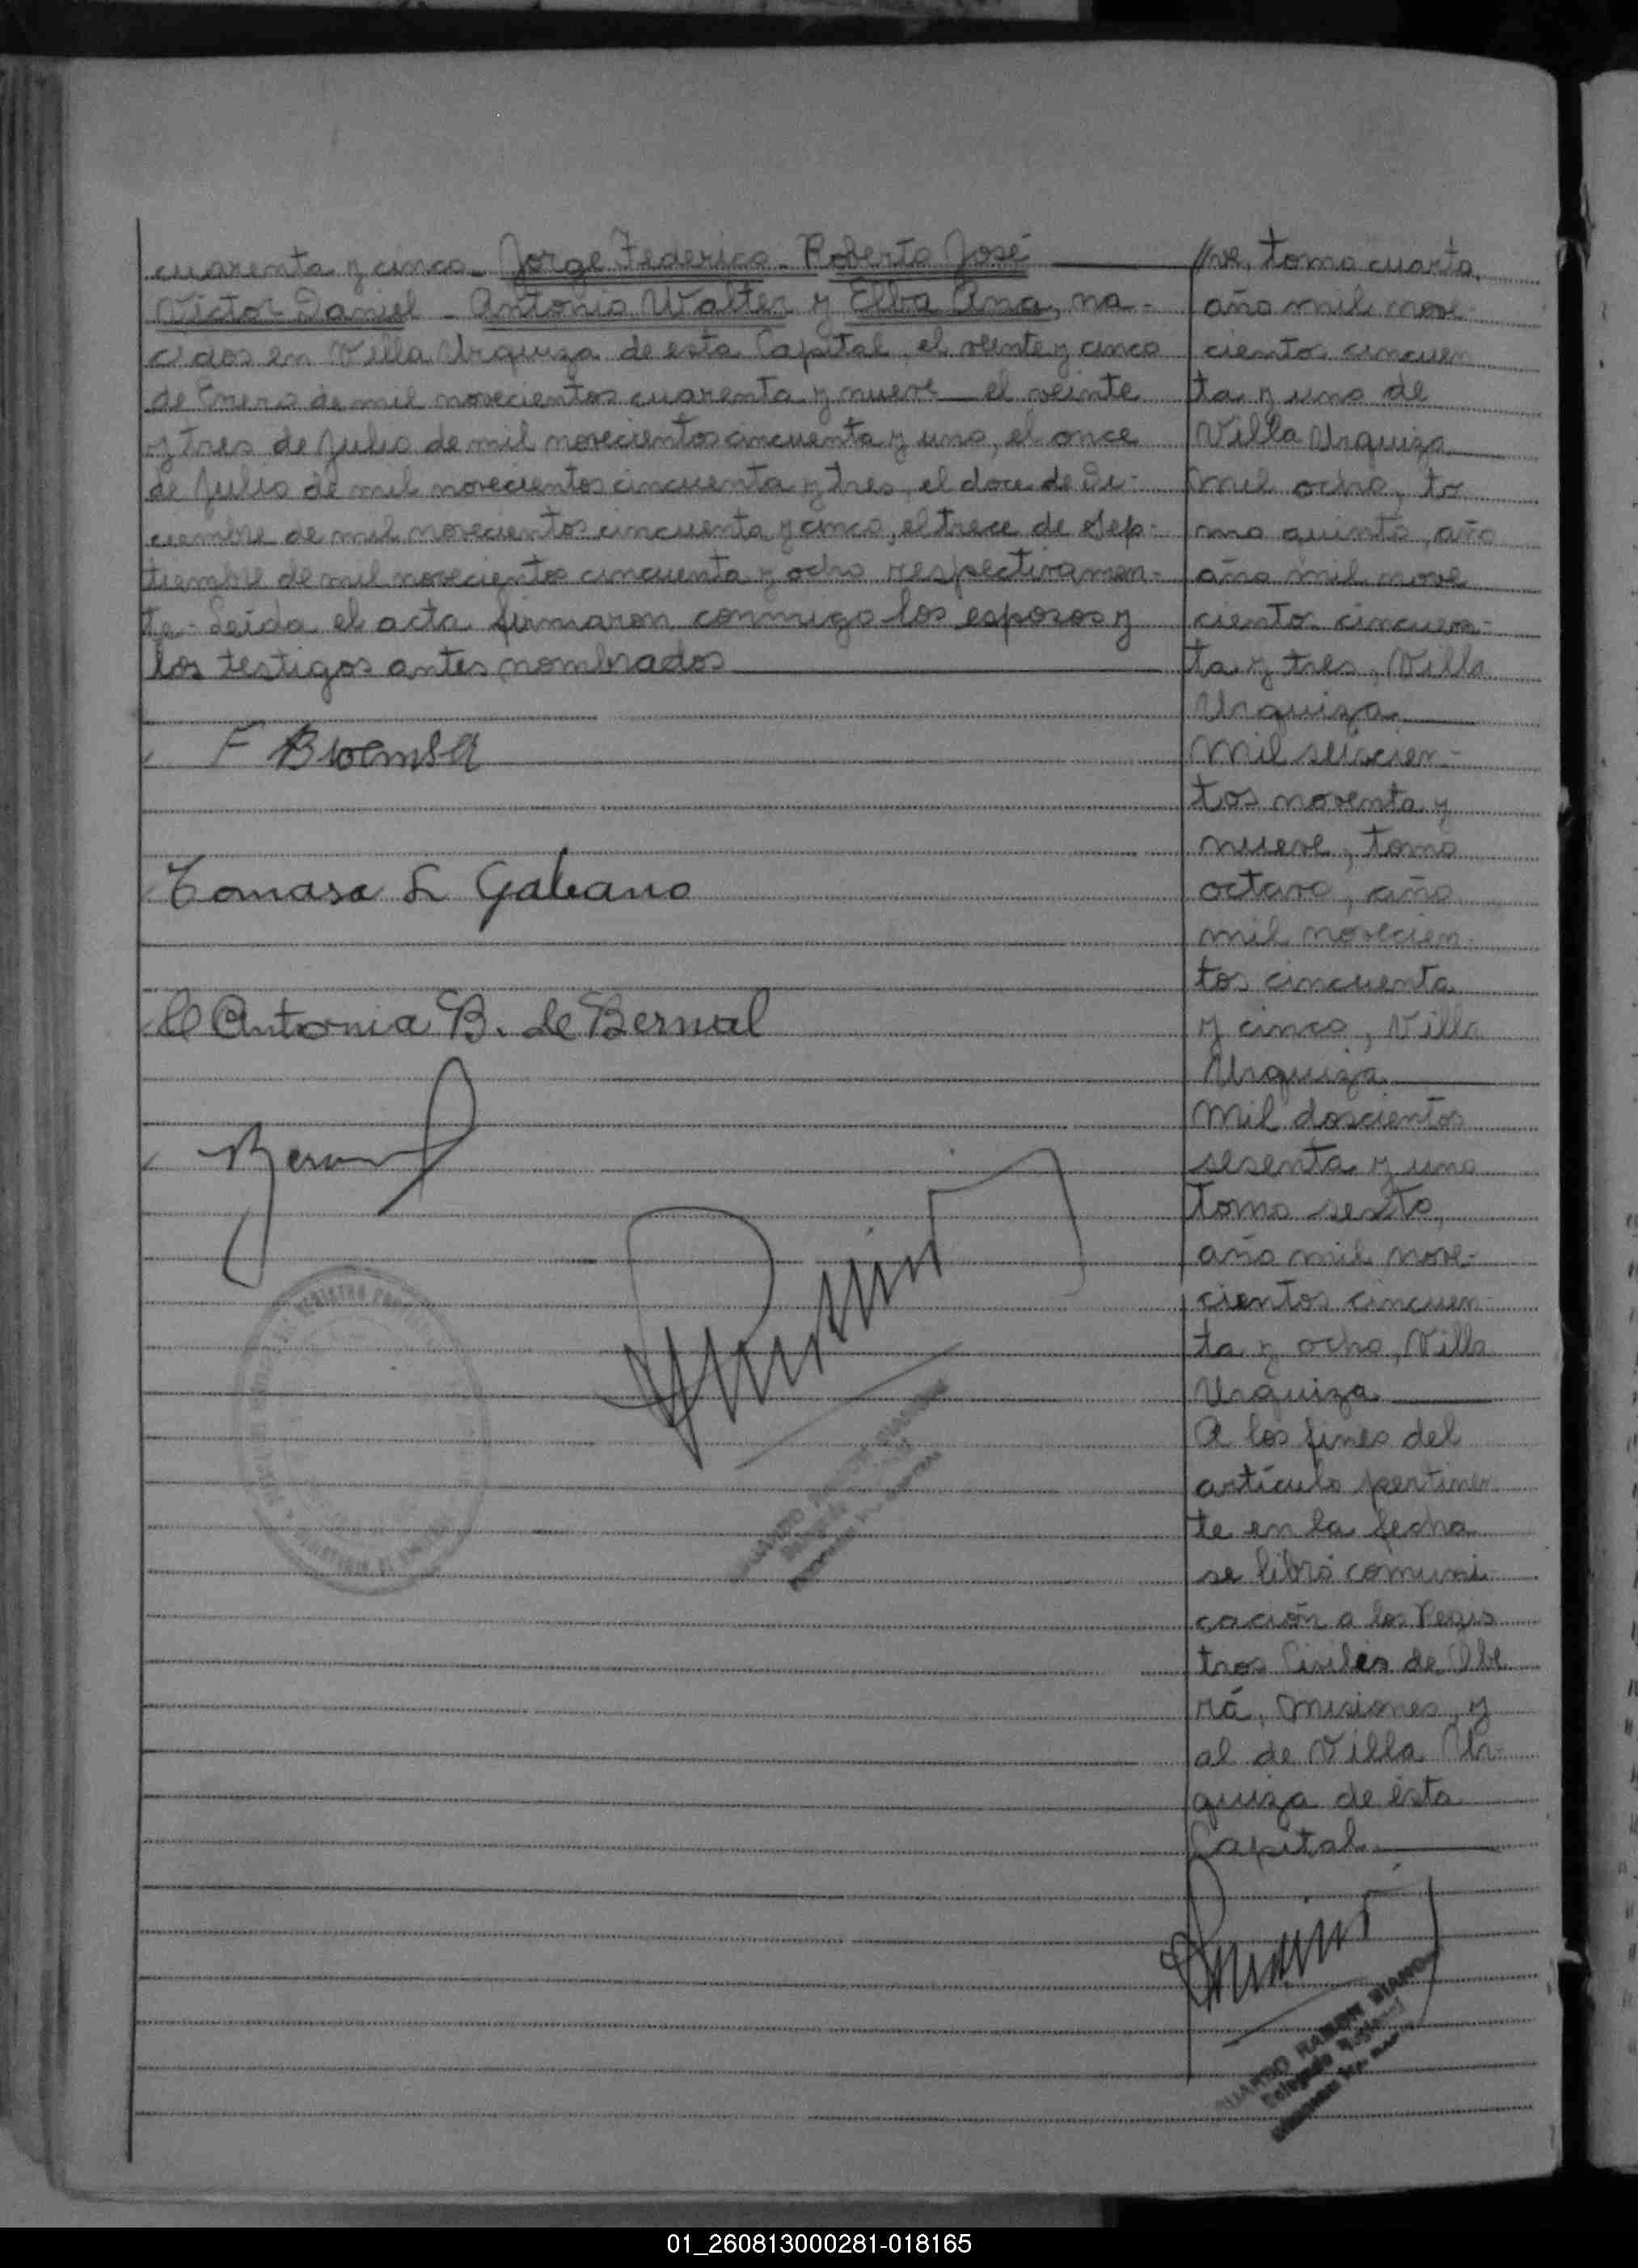 cuarenta y cinco - Jorge Federico - Roberto José
Victor Daniel - Antonio Walter y Elba Ana, na-
cidos en Villa Urquiza de esta Capital, el veinte y cinco
de Enero de mil novecientos cuarenta y nueve - el veinte
y tres de Julio de mil novecientos cincuenta y uno, el once
de Julio de mil novecientos cincuenta y tres, el doce de Di-
ciembre de mil novecientos cincuenta y cinco, el trece de Sep-
tiembre de mil novecientos cincuenta y ocho respectivamen-
te - Leída el acta firmaron conmigo los esposos y
los testigos antes nombrados
F
Tomasa L Galeano
Antonia B. de Bernal
Bernal
//ve, tomo cuarto,
año mil nove-
cientos cincuen
ta y uno de
Villa Urquiza
Mil ocho, to
mo quinto, año
año mil nove
cientos cincuen-
ta y tres, Villa
Urquiza
Mil seiscien-
tos noventa y
nueve, tomo
octavo, año
mil novecien-
tos cincuenta
y cinco, Villa
Urquiza
Mil doscientos
sesenta y uno
tomo sexto,
año mil nove-
cientos cincuen-
ta y ocho, Villa
Urquiza
A los fines del
artículo pertinen
te en la fecha
se libró comuni-
cación a los Regis
tros Civiles de Obe
rá, Misiones, y
al de Villa Ur-
quiza de ésta
Capital
RAMON BIANCHI
01_260813000281-018165